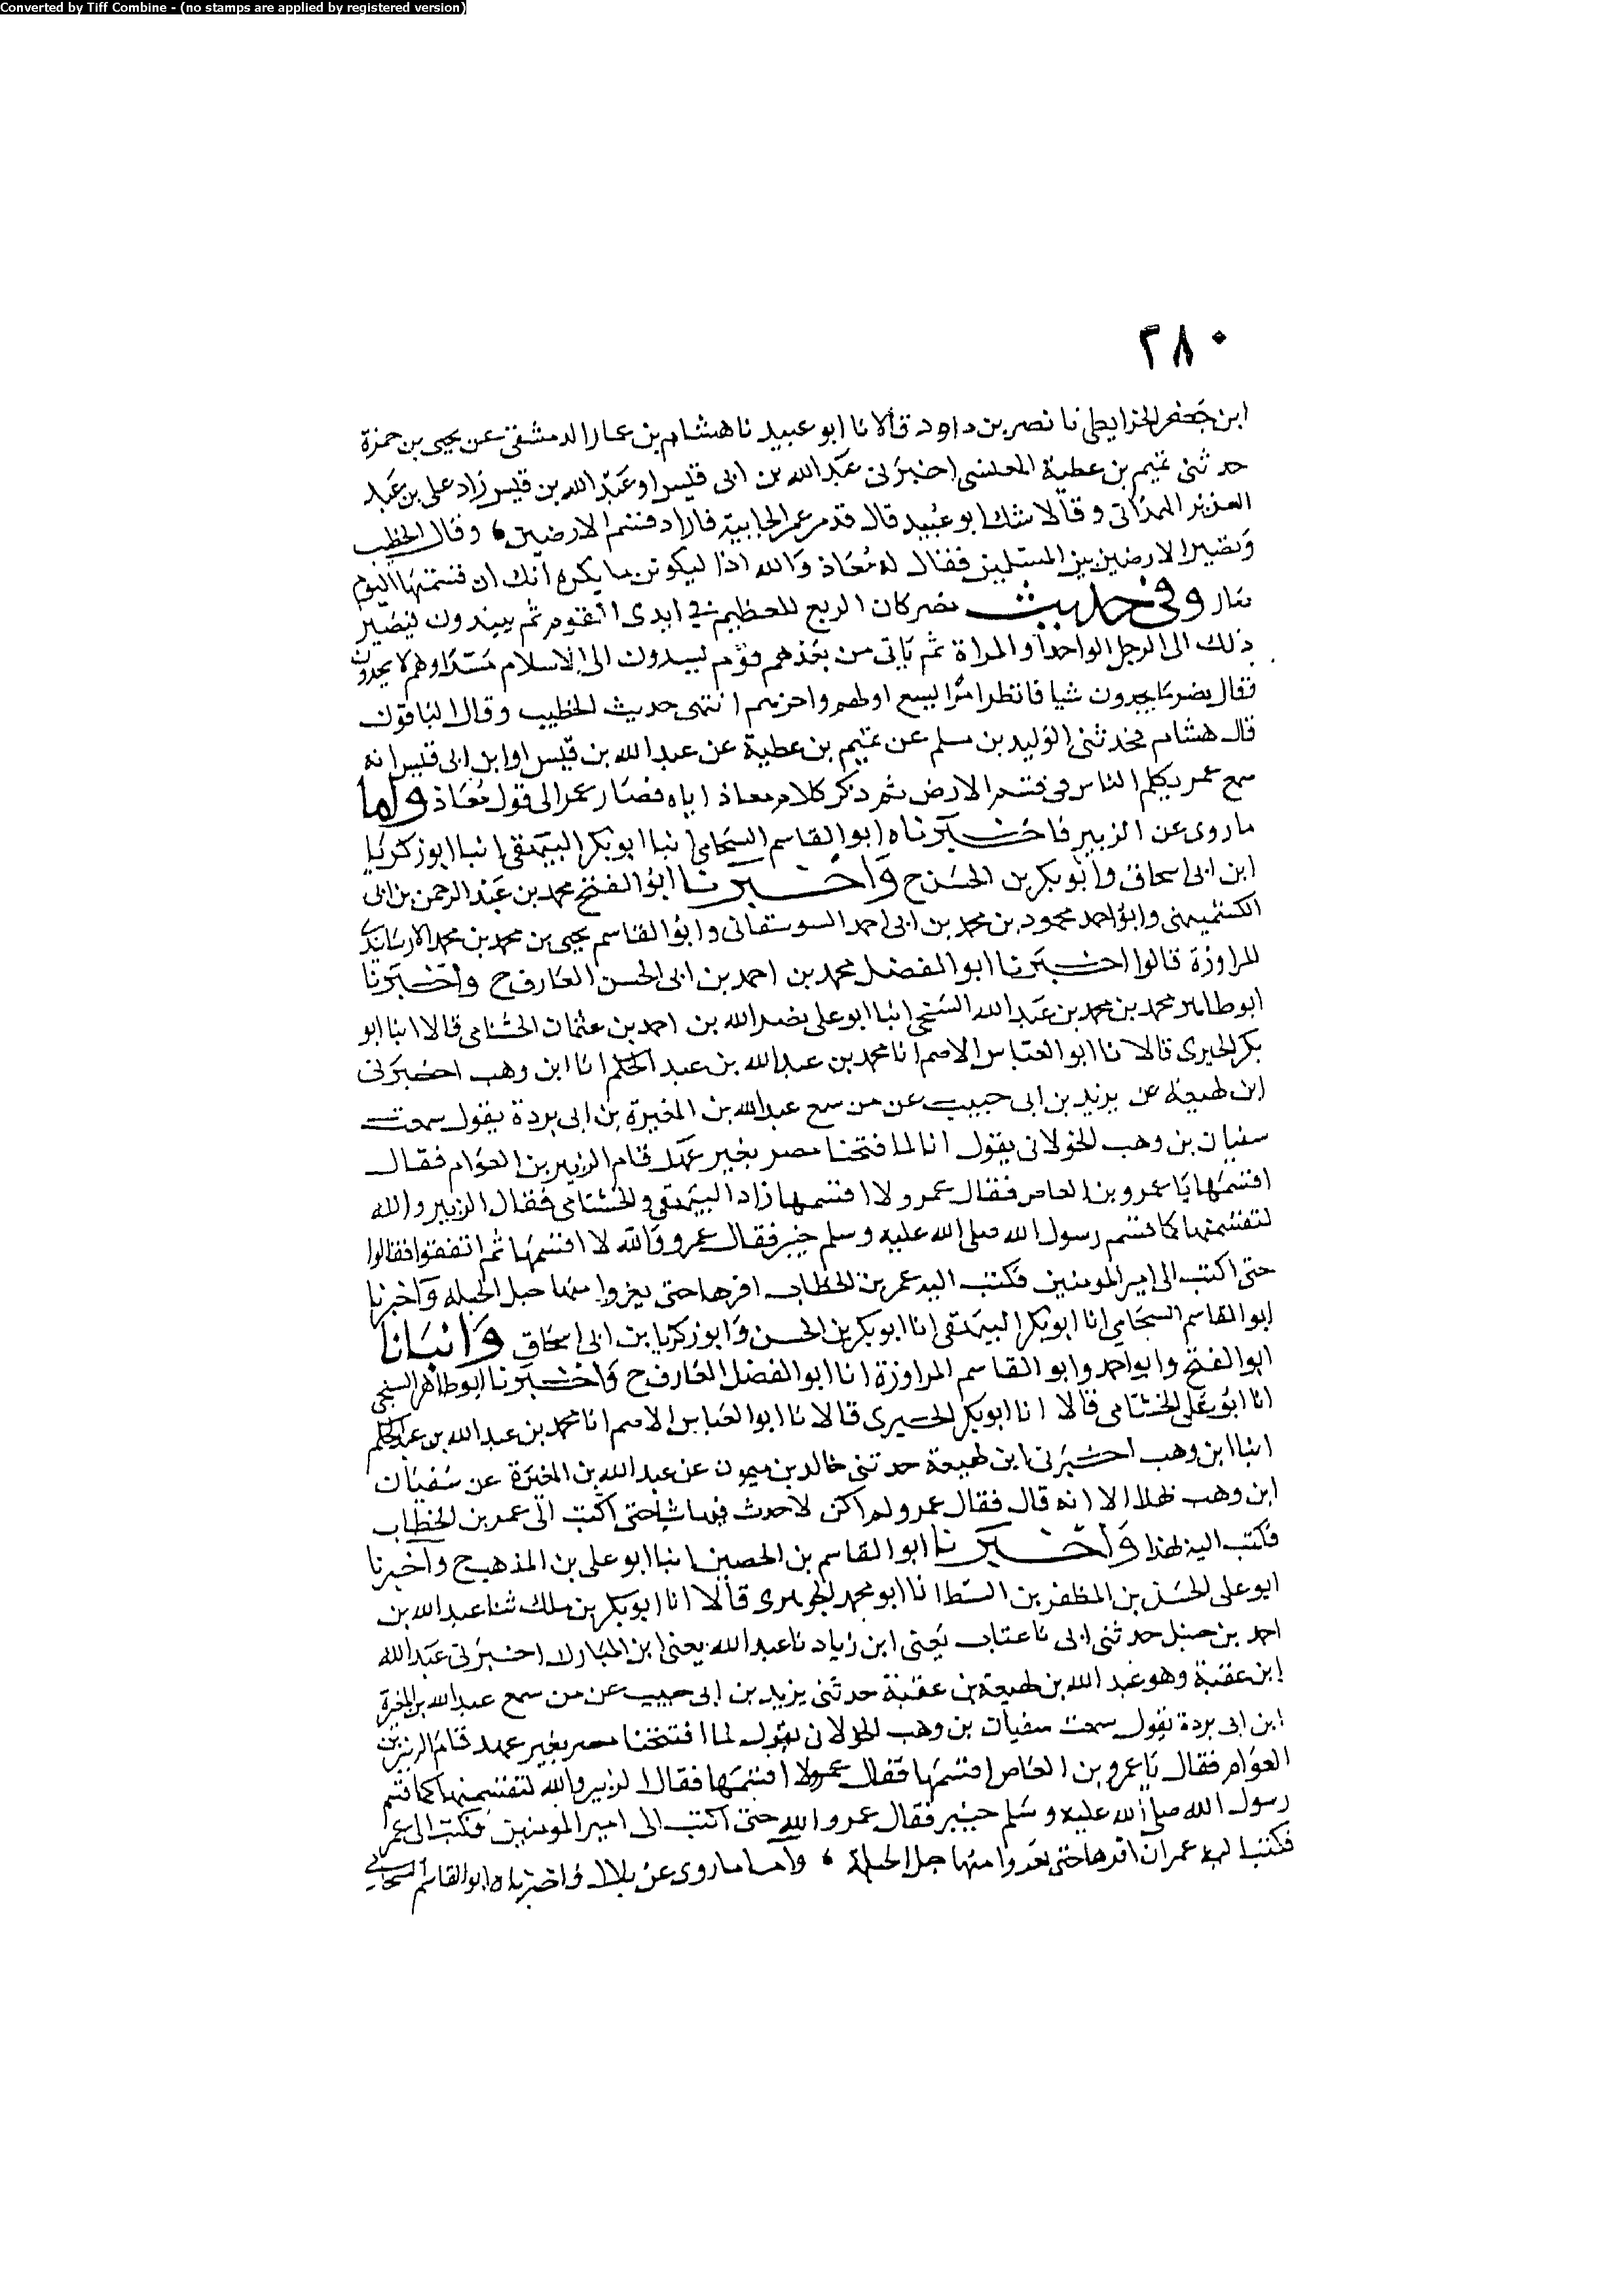 Converted by Tiff Combine - (no stamps are applied by registered version)
٢٨٠
ابن جعفر الخرايطي نا نصر بن داود قالا نا ابو عبيد نا هشام بن عمار الدمشقي عن يحيى بن حمزة
حدثني تميم بن عطية العنسي اخبرني عبد الله بن ابي قيس او عبد الله بن قيس زاد علي بن عبد
العزيز الهمداني وقالا شك ابو عبيد قال قدم عمر الجابية فاراد قسم الارضين وقال الخطيب
الارضين بين المسلمين فقال له معاذ والله اذا ليكونن ما يكره انك ان قسمتها اليوم
وفي حديث نصر كان الريع العظيم في ايدي القوم ثم يبيدون فيصير
ذلك الى الرجل الواحد او المراة ثم ياتي من بعدهم قوم يسدون الى الاسلام مسدا وهم لا يجدون
فقال نصر ما يجدون شيا فانظر امرا يسع اولهم واخرهم انتهى حديث الخطيب وقال الباقون
قال هشام فحدثني الوليد بن مسلم عن تميم بن عطية عن عبد الله بن قيس او ابن ابي قيس انه
سمع عمر يكلم الناس في قسم الارض ثم ذكر كلام معاذ اياه فصار عمر الى قول معاذ واما
ما روي عن الزبير فاخبرناه ابو القاسم الشحامي انبا ابو بكر البيهقي انبا ابو زكريا
ابن ابي اسحاق وابو بكر بن الحسن ح واخبرنا ابو الفتح محمد بن عبد الرحمن بن ابي
الكشميهني وابو احمد محمود بن محمد بن ابي احمد السوسقاني وابو القاسم يحيى بن محمد بن محمد
المراوزة قالوا اخبرنا ابو الفضل محمد بن احمد بن ابي الحسن العارف ح واخبرنا
ابو طاهر محمد بن محمد بن عبد الله السنجي انبا ابو علي نصر الله بن احمد بن عثمان الخشنامي قالا انبا ابو
بكر الحيري قالا نا ابو العباس الاصم انا محمد بن عبد الله بن عبد الحكم انا ابن وهب اخبرني
ابن لهيعة عن يزيد بن ابي حبيب عن من سمع عبد الله بن المغيرة بن ابي بردة يقول سمعت
سفيان بن وهب الخولاني يقول انا لما فتحنا مصر بغير عهد قام الزبير بن العوام فقال
اقسمها يا عمرو بن العاص فقال عمرو لا اقسمها زاد البيهقي والخشنامي فقال الزبير والله
لتقسمنها كما قسم رسول الله صلى الله عليه وسلم خيبر فقال عمرو والله لا اقسمها ثم اتفقوا فقالوا
حتى اكتب الى امير المومنين فكتب اليه عمر بن الخطاب اقرها حتى يغزوا منها حبل الحبلة واخبرنا
ابو القاسم الشحامي انا ابو بكر البيهقي انا ابو بكر بن الحسن وابو زكريا بن ابي اسحاق وانبانا
ابو الفتح وابو احمد وابو القاسم المراوزة انا ابو الفضل العارف ح واخبرنا ابو طاهر السنجي
انا ابو علي الخشنامي قالا انا ابو بكر الحيري قالا نا ابو العباس الاصم انا محمد بن عبد الله بن عبد الحكم
انبا ابن وهب اخبرني ابن لهيعة حدثني خالد بن ميمون عن عبد الله بن المغيرة عن سفيان
ابن وهب بهذا الا انه قال فقال عمرو لم اكن لاحدث فيها شيا حتى اكتب الى عمر بن الخطاب
فكتب اليه بهذا واخبرنا ابو القاسم بن الحصين انبا ابو علي بن المذهب ح واخبرنا
ابو علي الحسن بن المظفر بن السبط انا ابو محمد الجوهري قالا انا ابو بكر بن ملك ثنا عبد الله بن
احمد بن حنبل حدثني ابي نا عتاب يعني ابن زياد نا عبد الله يعني ابن المبارك اخبرني عبد الله
ابن عقبة وهو عبد الله بن لهيعة بن عقبة حدثني يزيد بن ابي حبيب عن من سمع عبد الله بن المغيرة
ابن ابي بردة يقول سمعت سفيان بن وهب الخولاني يقول لما افتتحنا مصر بغير عهد قام الزبير بن
العوام فقال يا عمرو بن العاص اقسمها فقال عمرو لا اقسمها فقال الزبير والله لتقسمنها كما قسم
رسول الله صلى الله عليه وسلم خيبر فقال عمرو والله حتى اكتب الى امير المومنين فكتب الى عمر
فكتب اليه عمر ان اقرها حتى يغزوا منها حبل الحبلة واما ما روي عن بلال فاخبرناه ابو القاسم الشحامي